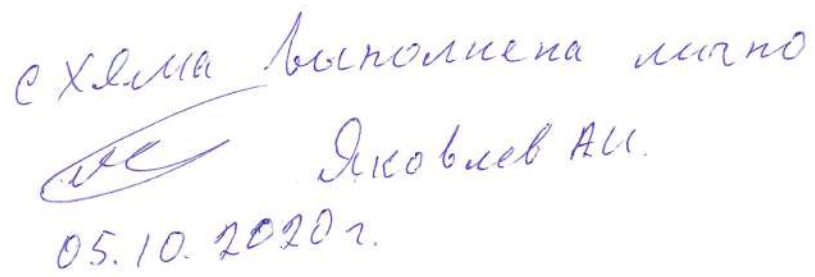 схяма выполнена лично
Яковлев А.И.
05.10.2020г.